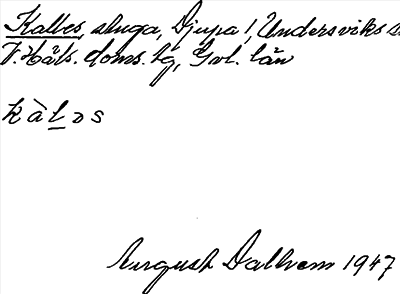 Kalbes, sluga, Djupa!, Undersviks s
V. Häls. doms. hg, Gvl. län
k à l ɔ s
August Dallvem 1947